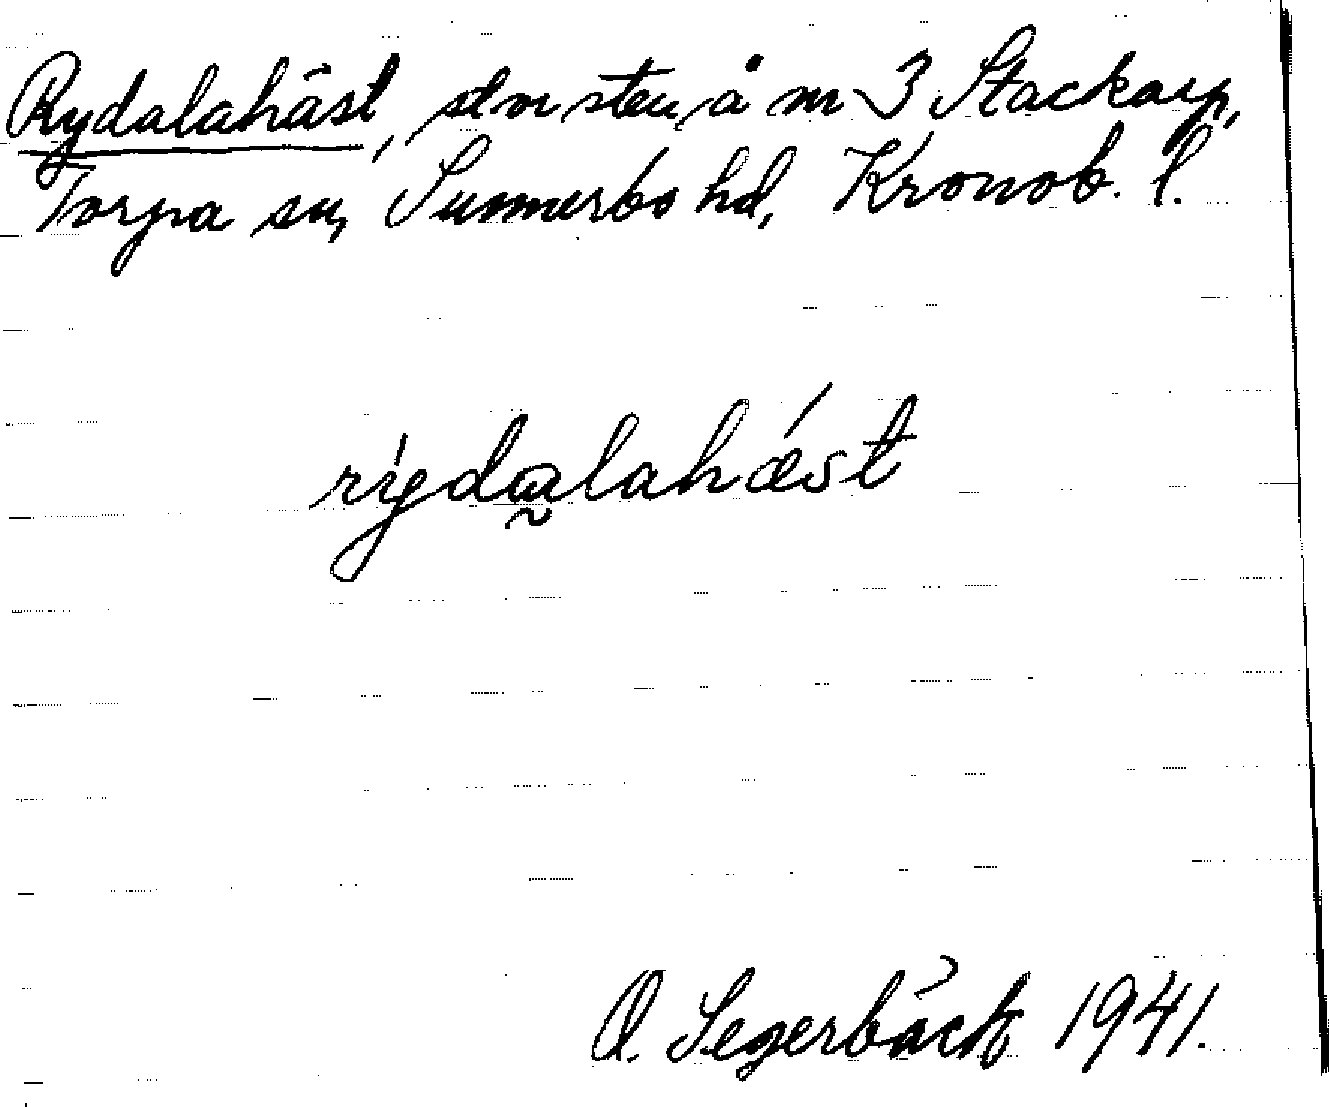 Rydalahäst, stor sten å nr 3 Stackarp,
Torpa sn, Sunnerbo hd, Kronob. l.
rydalahæst
O. Segerbäck 1941.